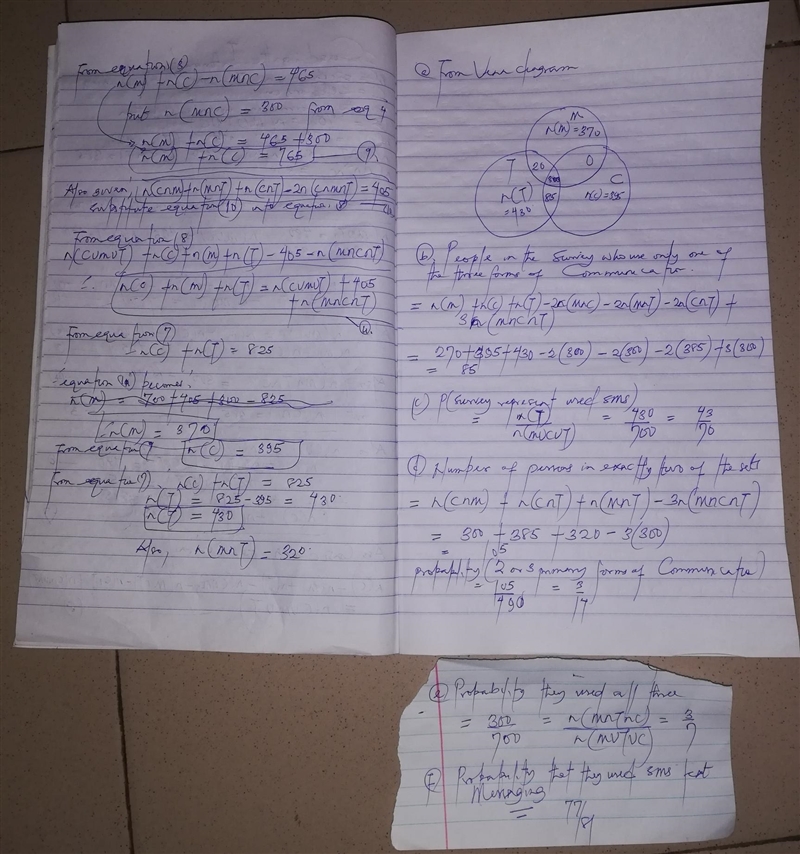 From equation (3)
n(m) + n(c) - n(mnc) = 465
put n(mnc) = 300 from eq 4
n(m) + n(c) = 465 + 300
n(m) + n(c) = 765 (9)
Also given, n(cnm) + n(mnT) + n(cnT) - 2n(cnmnT) = 405
Substitute equation (10) into equa.
From equation (8)
n(CUMUT) + n(c) + n(m) + n(T) - 405 - n(mncnT)
∴ n(c) + n(m) + n(T) = n(CUMUT) + 405
+ n(mncnT)
From equation (7)
n(c) + n(T) = 825
equation becomes
n(m) = 700 + 405 + 300 - 825
∴ n(m) = 370
From equation n(c) = 395
From equation (7) n(c) + n(T) = 825
n(T) = 825 - 395 = 430
n(T) = 430
Also, n(mnT) = 320
(a) From Venn diagram
M
n(m) = 370
T 20 0 C
300
n(T) 85 n(c) = 395
= 430
(b) People in the Survey who use only one of
the three forms of Communication.
= n(m) + n(c) + n(T) - 2n(mnc) - 2n(mnT) - 2n(cnT) +
3n(mncnT)
= 270 + 395 + 430 - 2(300) - 2(300) - 2(385) + 3(300)
= 85
(c) P(Survey represent used sms)
= n(T)/n(mUCUT) = 430/700 = 43/70
(d) Number of persons in exactly two of the sets
= n(cnm) + n(cnT) + n(mnT) - 3n(mncnT)
= 300 + 385 + 320 - 3(300)
= 105
probability (2 or 3 primary forms of Communication)
= 105/490 = 3/14
(e) Probability they used all three
= 300/700 = n(mnTnc)/n(mUTUC) = 3/7
(f) Probability that they used sms
Messaging
= 77/81